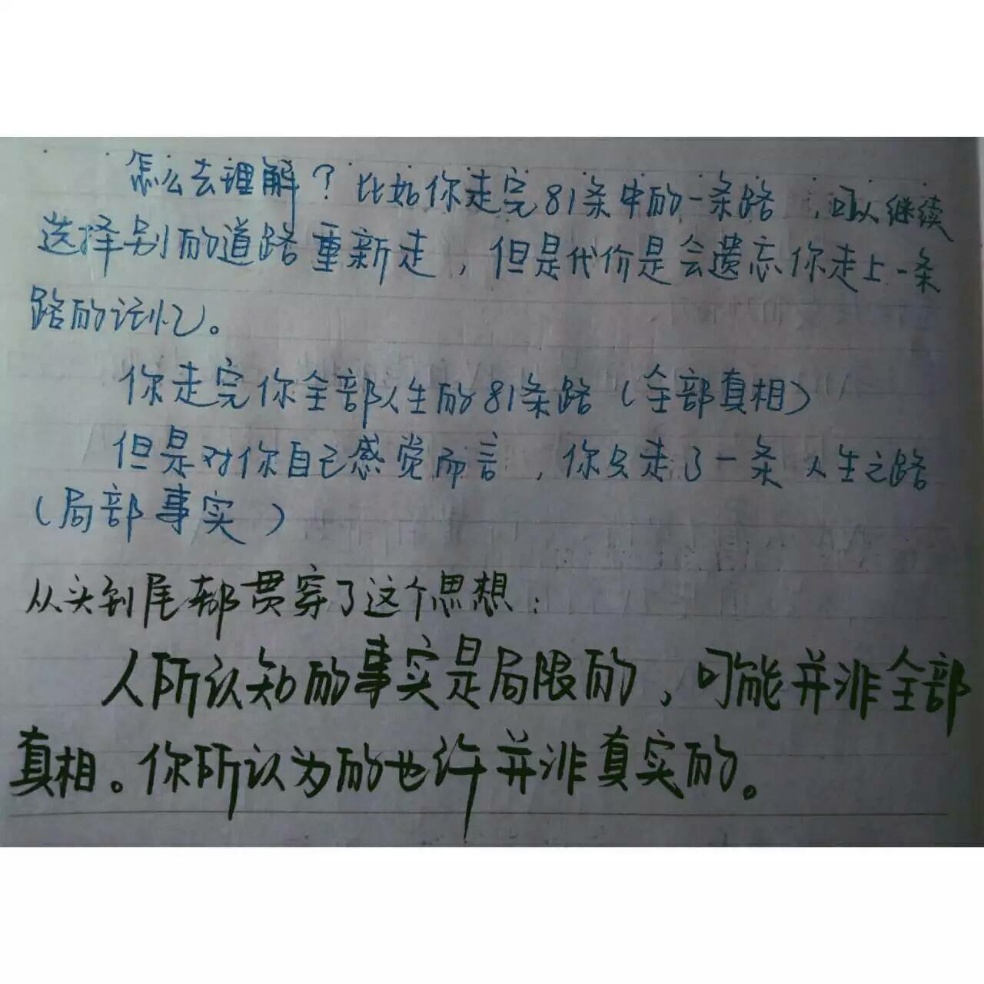 怎么去理解？比如你走完81条中的一条路，可以继续
选择别的道路重新走，但是代价是会遗忘你走上一条
路的记忆。
你走完你全部人生的81条路（全部真相）
但是对你自己感觉而言，你只走了一条人生之路
（局部事实）
从头到尾都贯穿了这个思想：
人所认知的事实是局限的，可能并非全部
真相。你所认为的也许并非真实的。